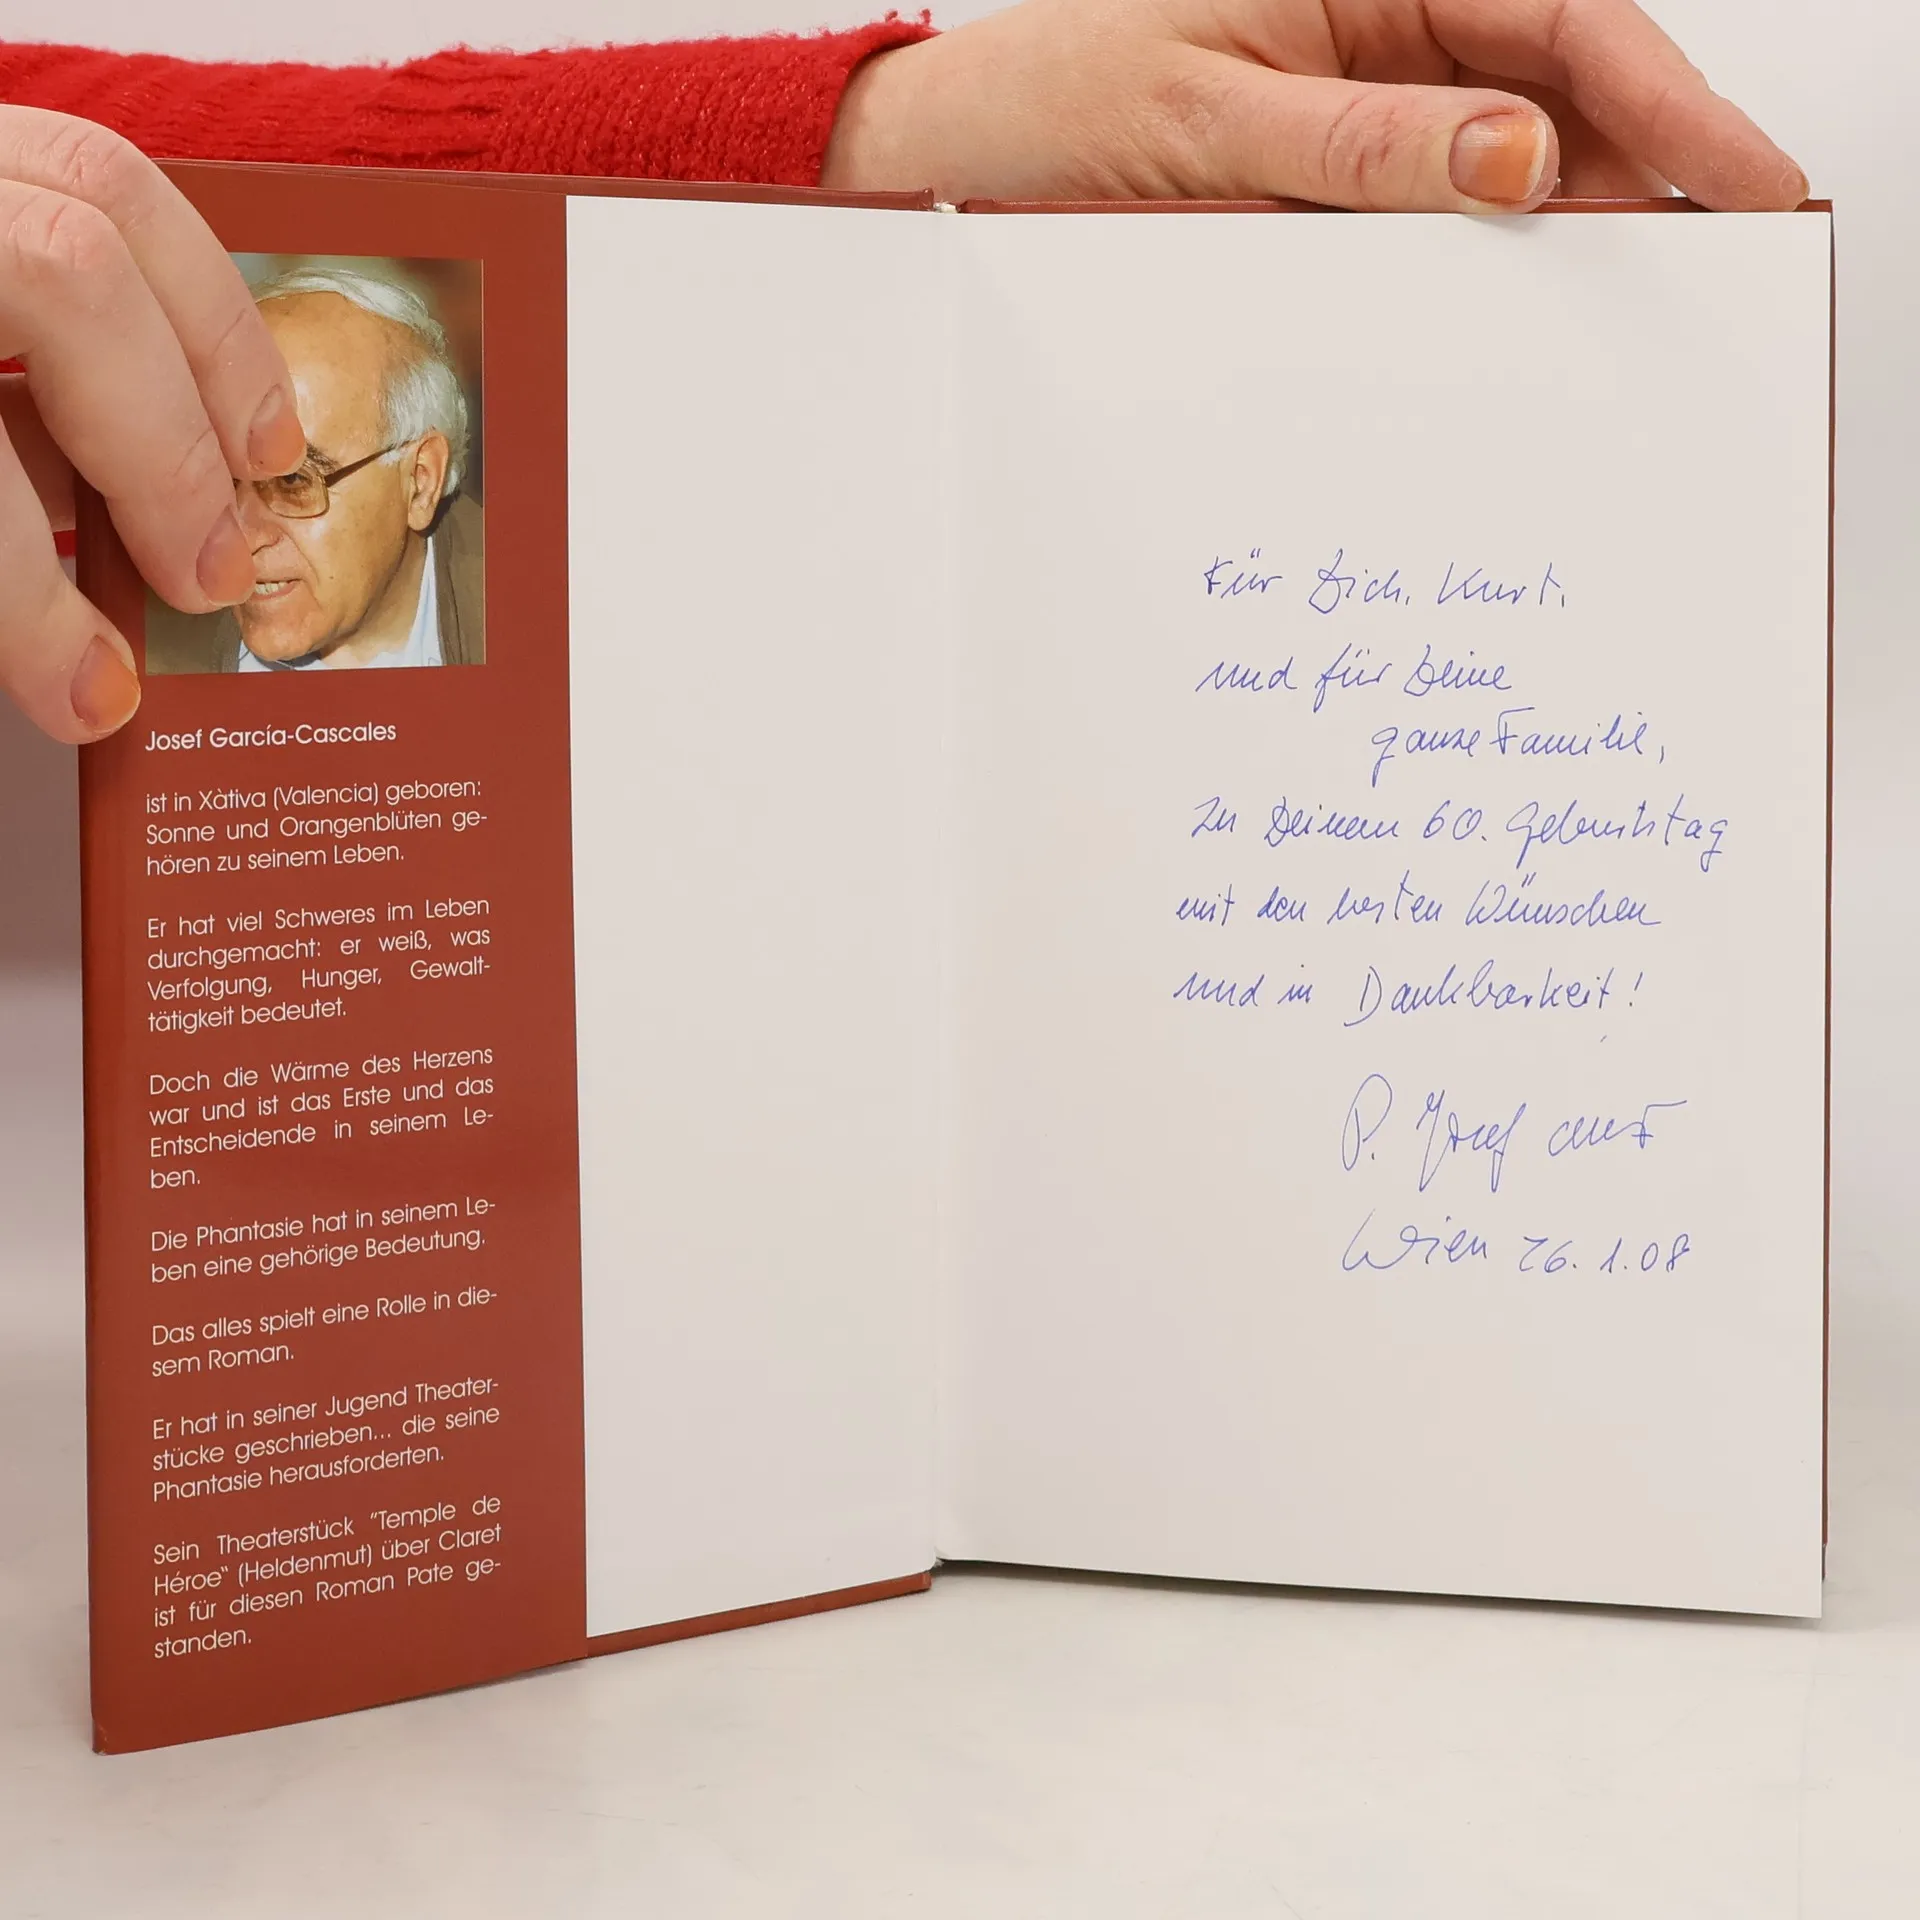 Josef García-Cascales
ist in Xàtiva (Valencia) geboren:
Sonne und Orangenblüten ge-
hören zu seinem Leben.
Er hat viel Schweres im Leben
durchgemacht: er weiß, was
Verfolgung, Hunger, Gewalt-
tätigkeit bedeutet.
Doch die Wärme des Herzens
war und ist das Erste und das
Entscheidende in seinem Le-
ben.
Die Phantasie hat in seinem Le-
ben eine gehörige Bedeutung.
Das alles spielt eine Rolle in die-
sem Roman.
Er hat in seiner Jugend Theater-
stücke geschrieben... die seine
Phantasie herausforderten.
Sein Theaterstück "Temple de
Héroe" (Heldenmut) über Claret
ist für diesen Roman Pate ge-
standen.
Für Dich, Kurt,
und für Deine
ganze Familie,
zu Deinem 60. Geburtstag
mit den besten Wünschen
und in Dankbarkeit!
P. Josef
Wien 26.1.08